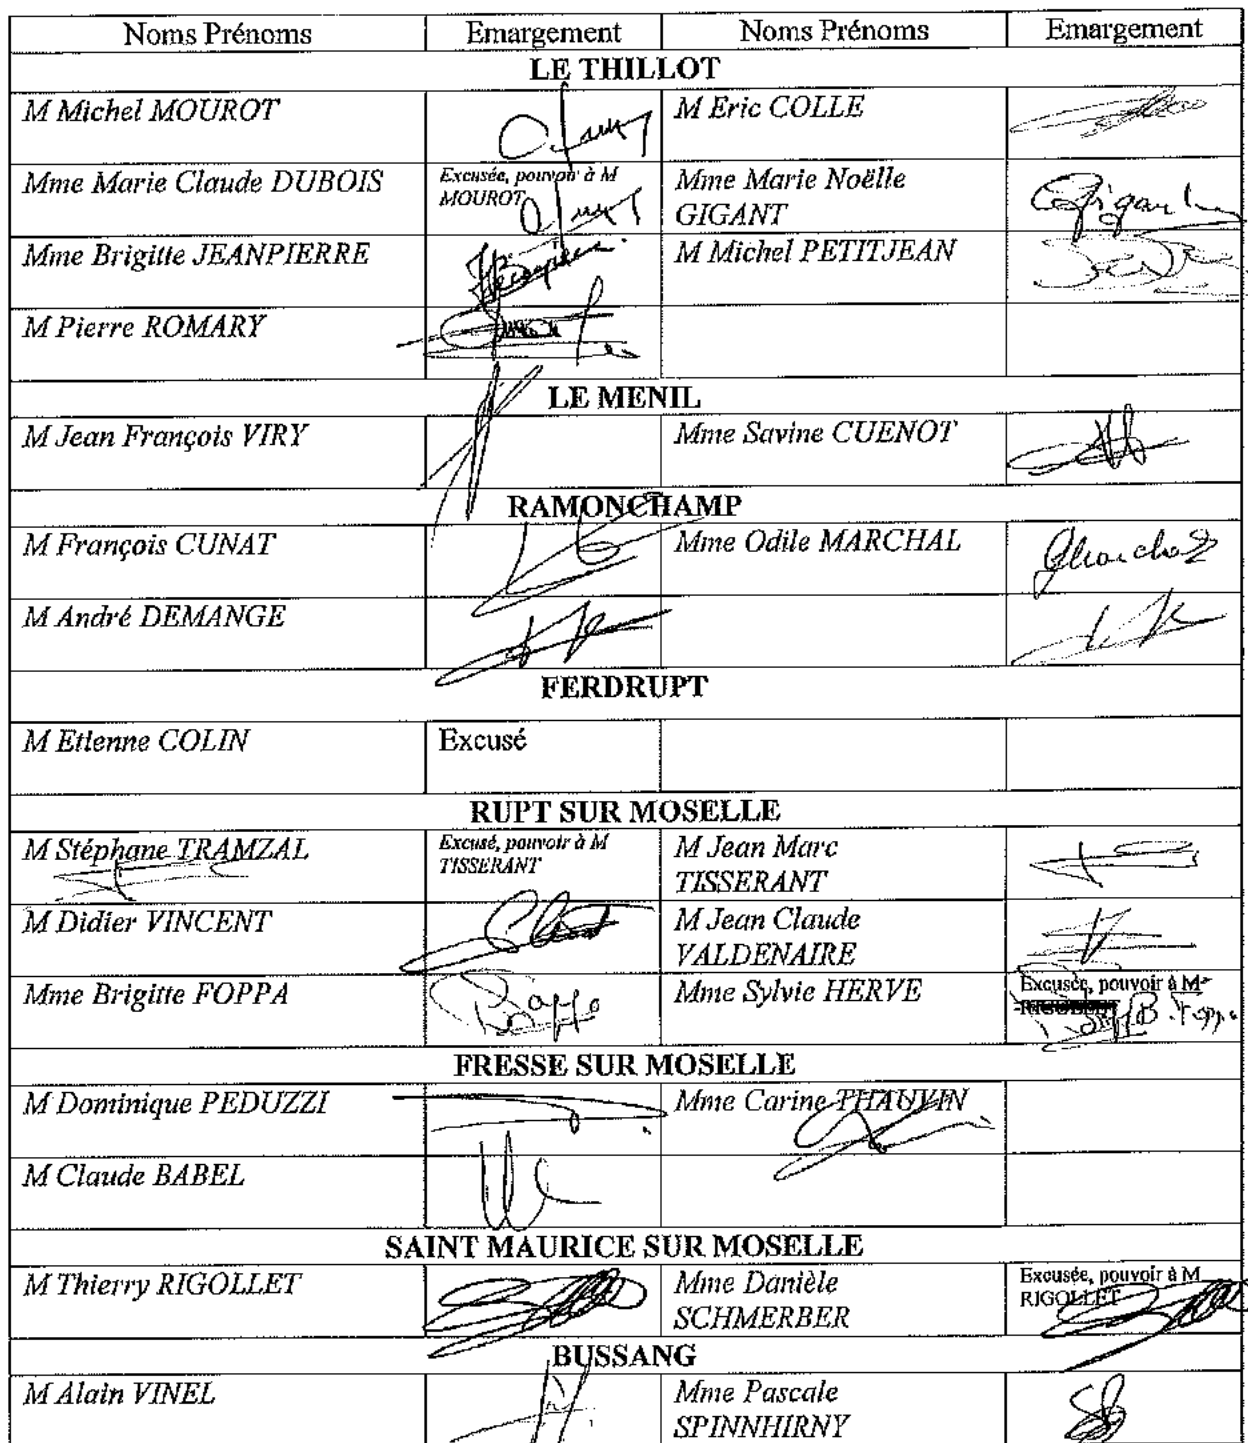 Noms Prénoms Emargement Noms Prénoms Emargement
LE THILLOT
M Michel MOUROT M Eric COLLE
Mme Marie Claude DUBOIS Excusée, pouvoir à M Mme Marie Noëlle
MOUROT GIGANT
Mme Brigitte JEANPIERRE M Michel PETITJEAN
M Pierre ROMARY
LE MENIL
M Jean François VIRY Mme Savine CUENOT
RAMONCHAMP
M François CUNAT Mme Odile MARCHAL
M André DEMANGE
FERDRUPT
M Etienne COLIN Excusé
RUPT SUR MOSELLE
M Stéphane TRAMZAL Excusé, pouvoir à M M Jean Marc
TISSERANT TISSERANT
M Didier VINCENT M Jean Claude
VALDENAIRE
Mme Brigitte FOPPA Mme Sylvie HERVE Excusée, pouvoir à M
RIGOLLET
B. Foppa
FRESSE SUR MOSELLE
M Dominique PEDUZZI Mme Carine THAUVIN
M Claude BABEL
SAINT MAURICE SUR MOSELLE
M Thierry RIGOLLET Mme Danièle Excusée, pouvoir à M
SCHMERBER RIGOLLET
BUSSANG
M Alain VINEL Mme Pascale
SPINNHIRNY